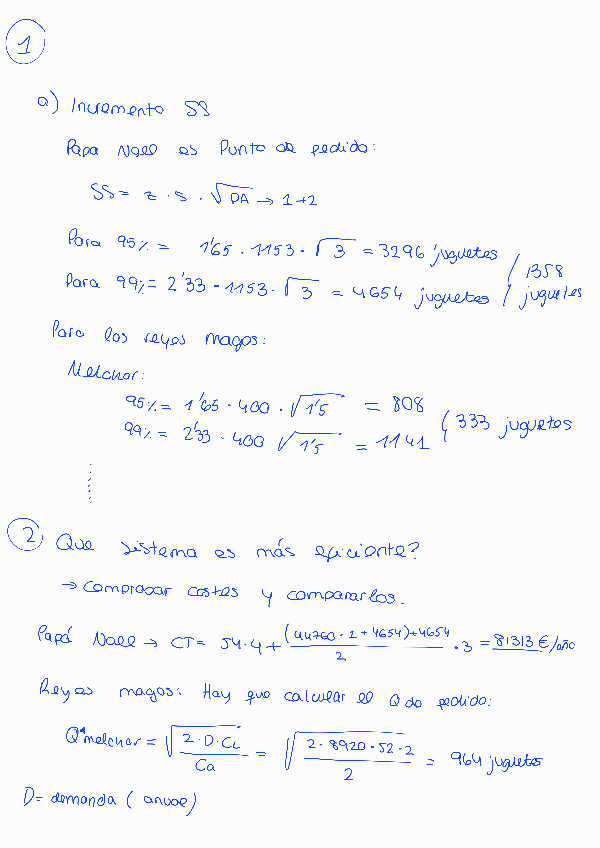 1
a) Incremento SS
Papa Noel es Punto de pedido:
SS = z · s · √DA → 1+2
Para 95% = 1'65 · 1153 · √3 = 3296 juguetes
Para 99% = 2'33 - 1153 · √3 = 4654 juguetes
1358 juguetes
Para los reyes magos:
Melchor:
95% = 1'65 · 400 · √1'5 = 808
99% = 2'33 · 400 √1'5 = 1141
333 juguetes
2 Que sistema es más eficiente?
→ Comprobar costes y compararlos.
Papá Noel → CT = 54·4 + ((44760 · 1 + 4654) + 4654)/2 · 3 = 81313 €/año
Reyes magos: Hay que calcular el Q do pedido:
Q* melchor = √(2·D·CL / Ca) = √(2 · 8920 · 52 · 2 / 2) = 964 juguetes
D = demanda (anual)